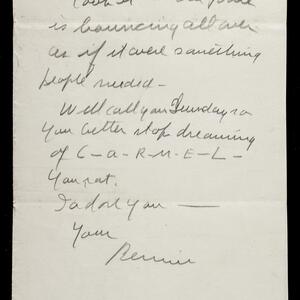 is bouncing all over
as if it were something
people needed—
Will call you Sunday so
you better stop dreaming
of C-a-R-M-E-L-
You rat.
I adore you —
Your
Bernie